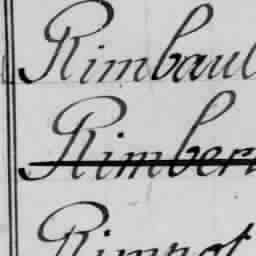 Rimbaul
Rimber
Rimpot